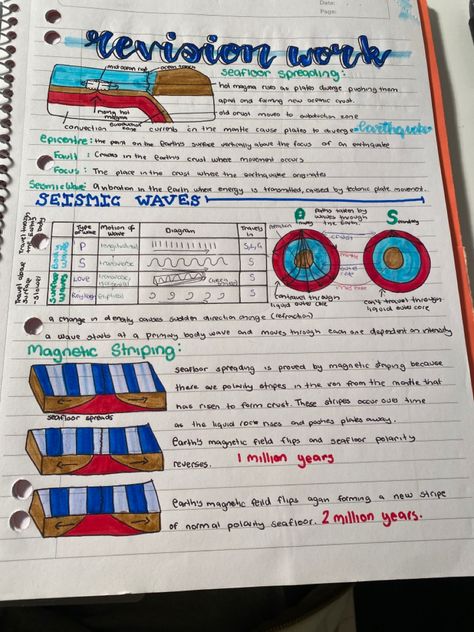 Date:
Page:
revision work
seafloor spreading:
mid ocean ridge
ocean trench
rising hot magma
subduction zone
hot magma rises as plates diverge pushing them
apart and forming new oceanic crust.
old crust moves to subduction zone
convection currents in the mantle cause plates to diverge
earthquake
Epicentre: the point on the Earth's surface vertically above the focus of an earthquake
Fault: cracks in the Earth's crust where movement occurs
Focus: The place in the crust where the earthquake originates
Seismic Wave: a vibration in the Earth where energy is transmitted, caused by tectonic plate movement.
SEISMIC WAVES
Type of Wave
Motion of Wave
Diagram
Travels in
P
longitudinal
S,L,G
S
transverse
S
Love
S
Rayleigh
S
Body Waves
Surface Waves
P
paths taken by waves through the Earth.
S
can travel through liquid outer core
can't travel through liquid outer core
a change in density causes sudden direction change (refraction)
a wave starts at a primary body wave and moves through each one dependent on intensity
Magnetic Striping:
seafloor spreading is proved by magnetic striping because
there are polarity stripes in the iron from the mantle that
has risen to form crust. These stripes occur over time
as the liquid rock rises and pushes plates away.
seafloor spreads
Earth's magnetic field flips and seafloor polarity
reverses. 1 million years
earth's magnetic feild flips again forming a new stripe
of normal polarity seafloor. 2 million years.